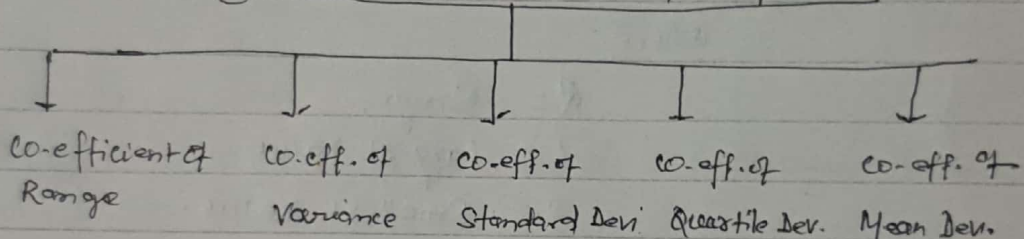 Co-efficient of
Range
Co.eff. of
Variance
Co-eff. of
Standard Devi
Co-eff. of
Quartile Dev.
Co-eff. of
Mean Dev.